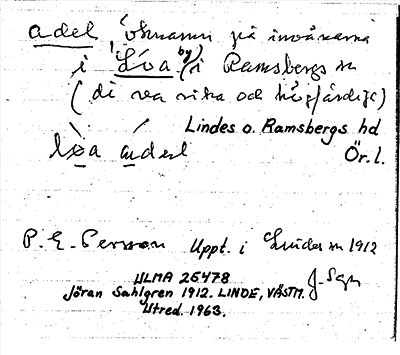 adel öknamn på invånarna
i Löa (by) i Ramsbergs sn
(di va rika och högfärdige)
Lindes o. Ramsbergs hd
Ör. l.
P. E. Persson Uppt. i Lindes sn 1912
J. Sgn
ULMA 26478
Jöran Sahlgren 1912. LINDE, VÄSTM.
Utred. 1963.